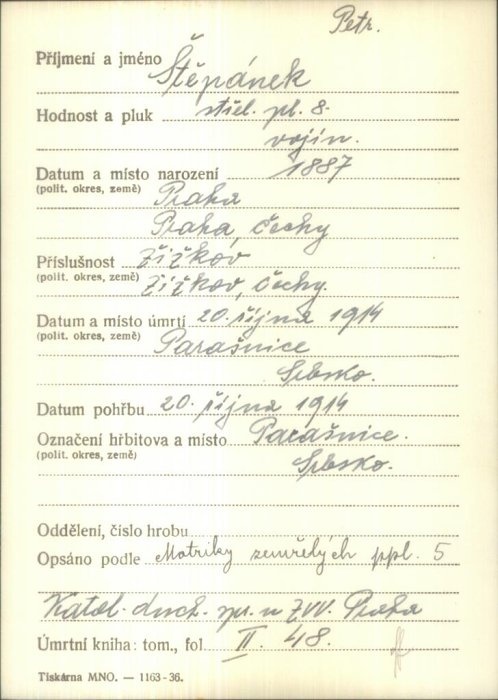 Petr.
Příjmení a jméno Štěpánek
Hodnost a pluk střel. pl. 8.
vojín.
Datum a místo narození 1887
(polit. okres, země) Praha
Praha, Čechy
Příslušnost Žižkov
(polit. okres, země) Žižkov, Čechy.
Datum a místo úmrtí 20. října 1914
(polit. okres, země) Parašnice
Srbsko.
Datum pohřbu 20. října 1914
Označení hřbitova a místo Parašnice.
(polit. okres, země) Srbsko.
Oddělení, číslo hrobu
Opsáno podle Matriky zemřelých ppl. 5
Katol. duch. spr. u ZVV. Praha
Úmrtní kniha: tom., fol II. 48.
Tiskárna MNO. — 1163-36.